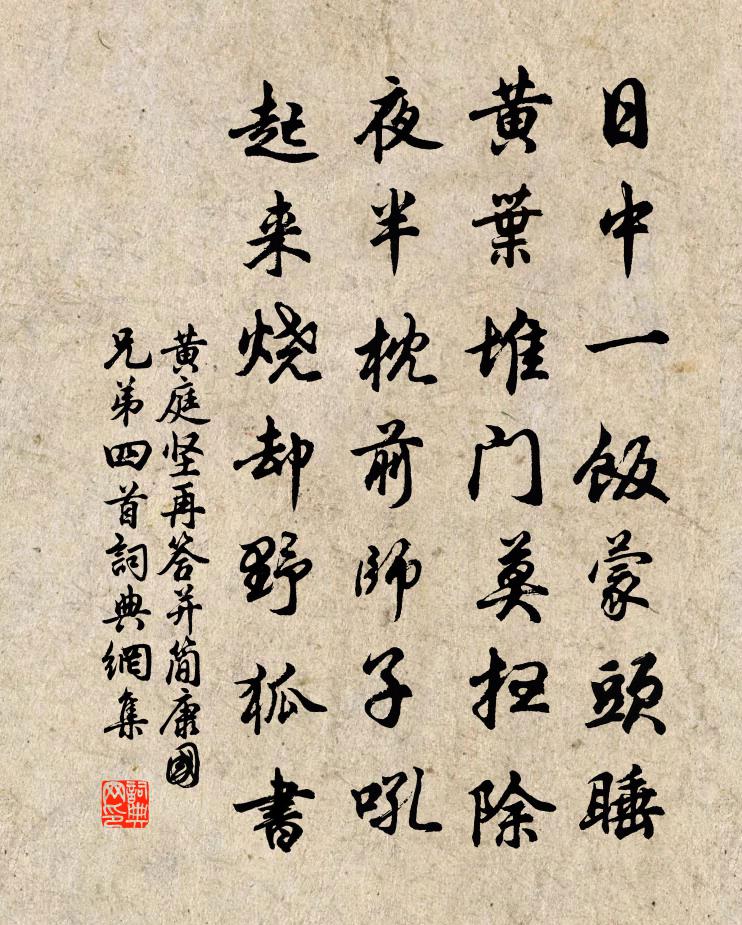 日中一飯蒙頭睡
黄葉堆门莫扫除
夜半枕前師子吼
起来烧却野狐書
黄庭坚再答并简康國
兄弟四首詞典網集
詞典
网印